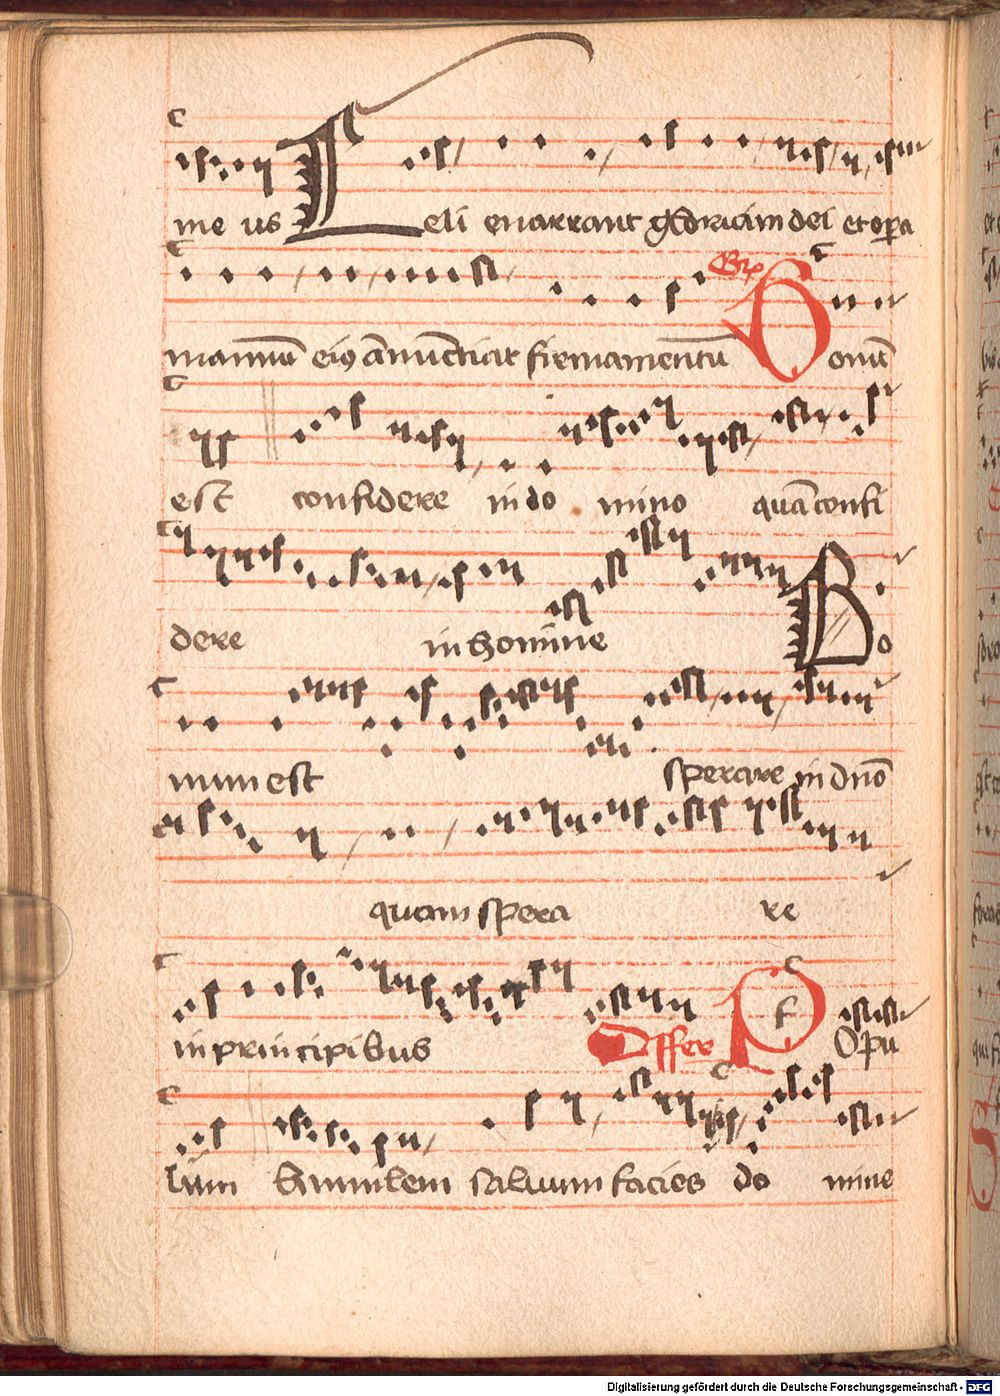 me us Celi enarrant gloriam dei et opera
manuum eius annunciat firmamentum Gr Bonum
est confidere in do mino quam confi
dere in homine Bo
num est sperare in domino
quam spera re
in principibus Offer P Opu
lum humilem saluum facies do mine
Digitalisierung gefördert durch die Deutsche Forschungsgemeinschaft - DFG